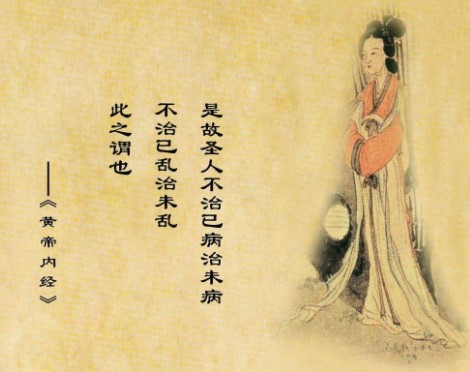 是故圣人不治已病治未病
不治已乱治未乱
此之谓也
——《黄帝内经》